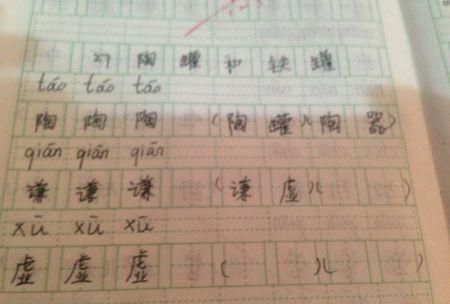 27 陶罐和铁罐
táo táo táo
陶 陶 陶 (陶罐)(陶器)
qiān qiān qiān
谦 谦 谦 (谦虚)( )
xū xū xū
虚 虚 虚 ( )( )